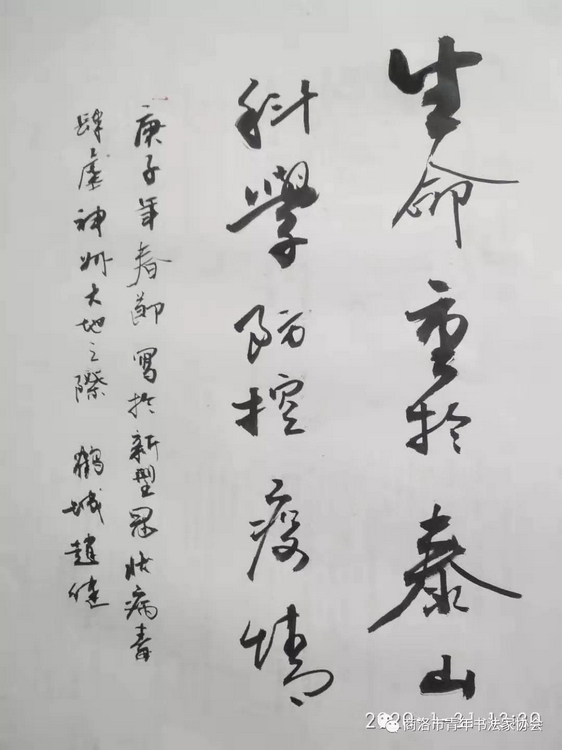 生命重於泰山
科學防控疫情
庚子年春節寫於新型冠狀病毒
肆虐神州大地之際 鶴城趙健
2020-1-31 13:30
商洛市青年书法家协会